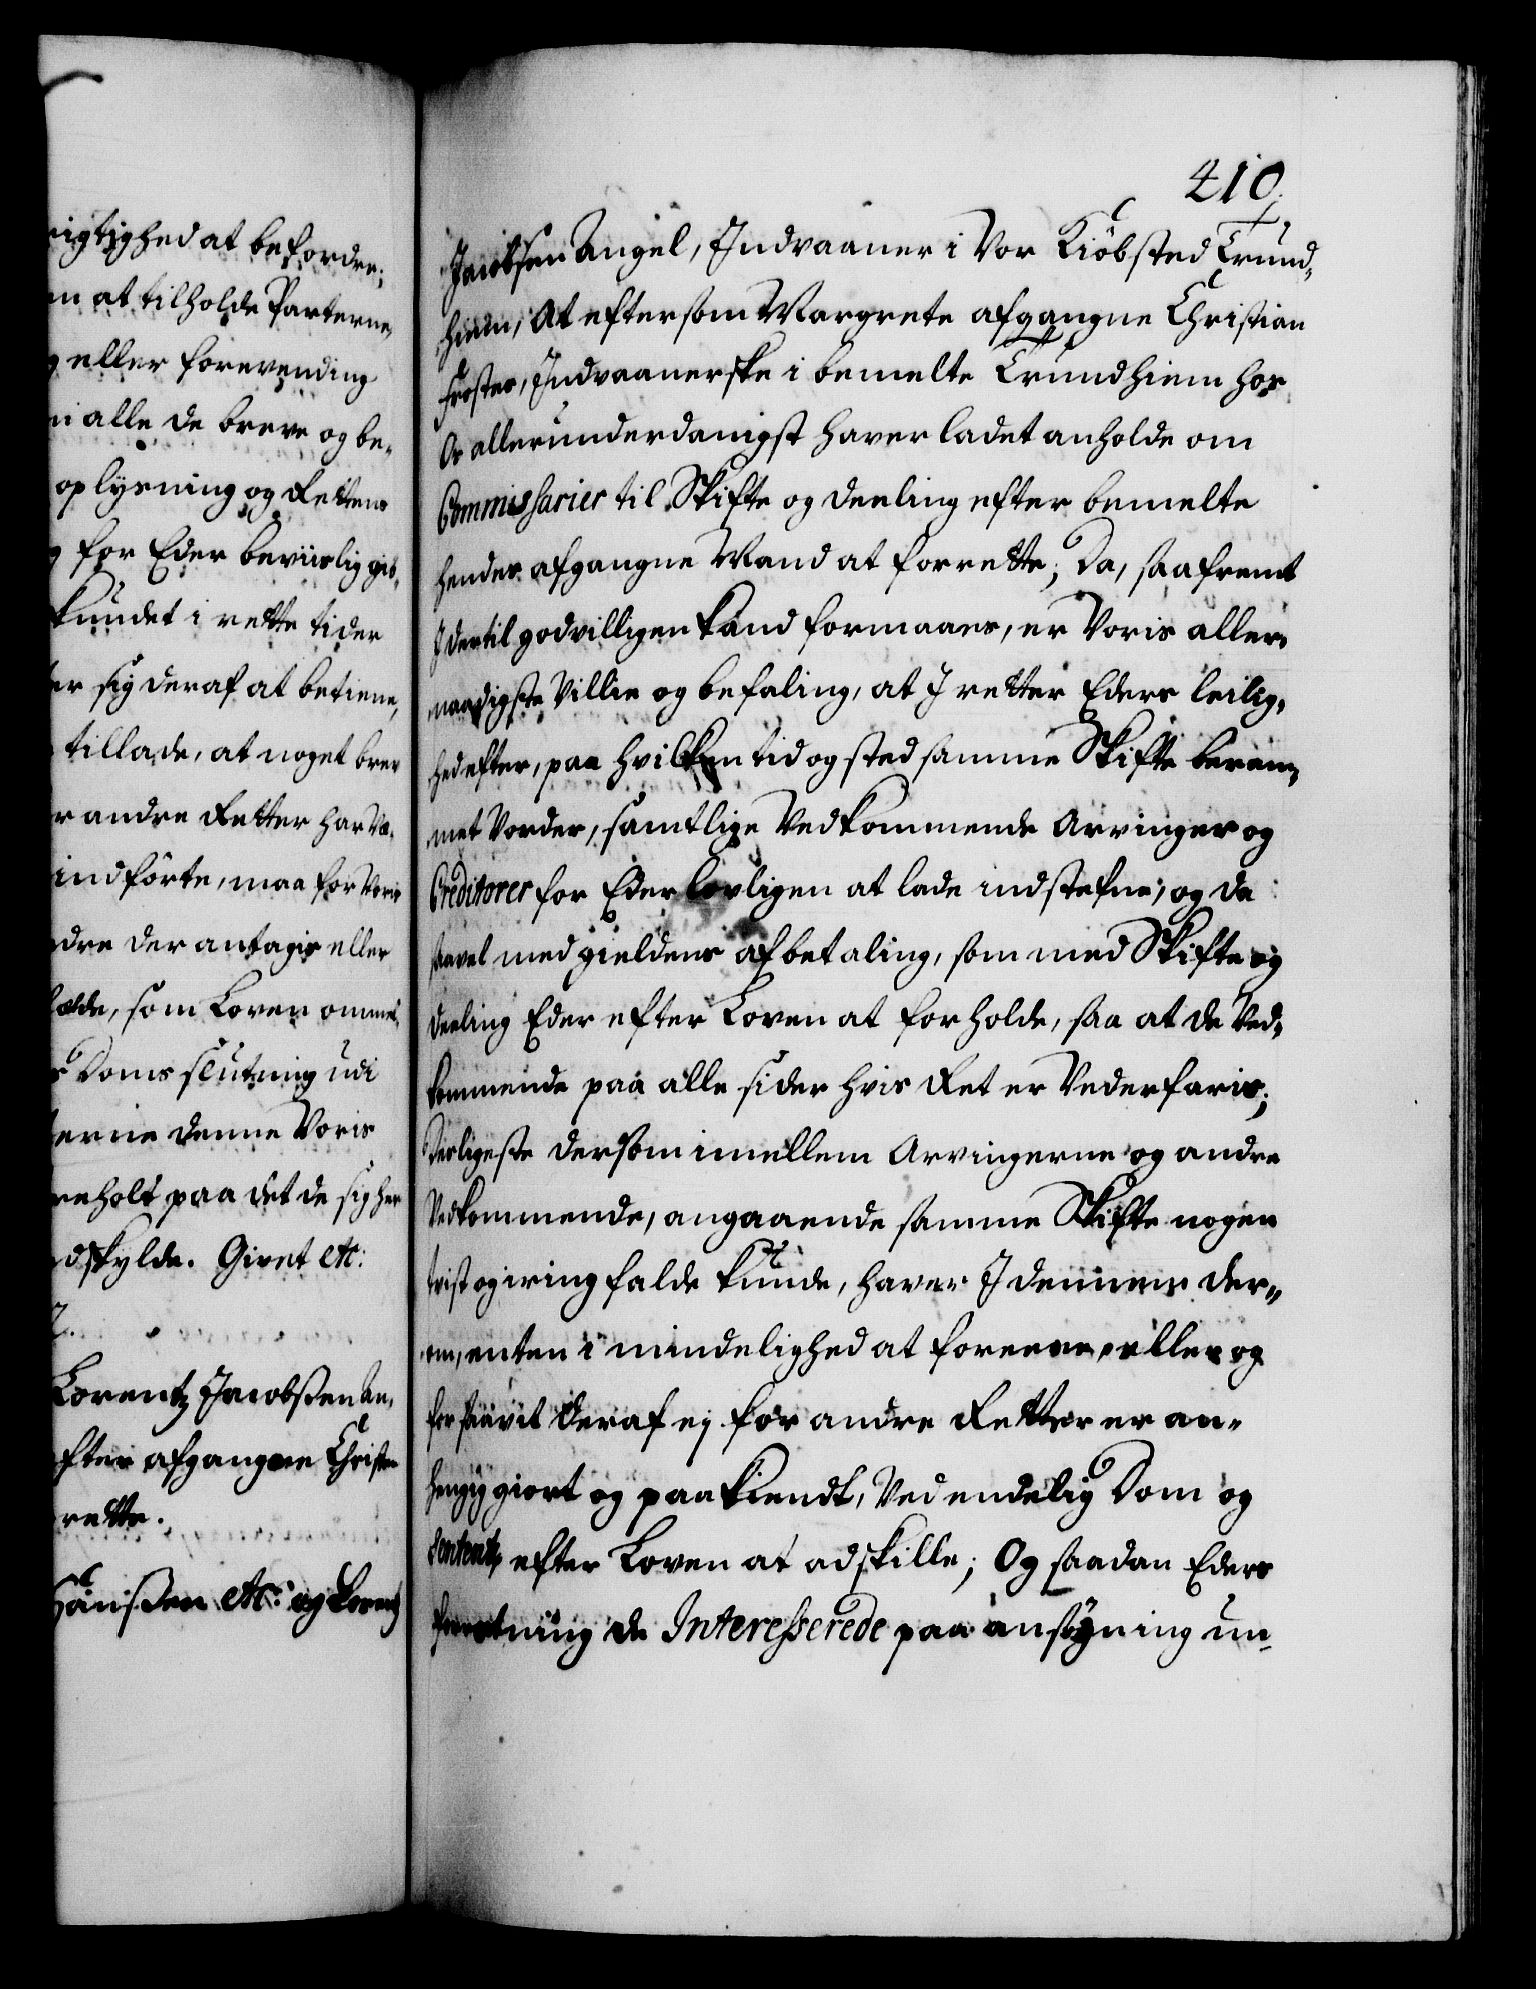 rigtighed at befordre;
en at tilholde Parterne,
g eller forevending
i alle de breve og be-
oplysning og Rettens
g for Eder beviislig giø-
kundet i rette tider
er sig deraf at betiene,
tillade, at noget brev
r andre Retter har væ-
indførte, maa for Voris
dre der antagis eller
lælde, som Loven ommel-
s Doms slutning udi
erne denne Voris
reholt paa det de sig her
dskylde. Givet etc:
Lorentz Jacobssen An-
fter afgangne Christen
rette.
Hanssen etc: og Lorentz
410.
Jacobsen Angel, Indvaaner i Vor Kiöbsted Trund-
hiem, At eftersom Margrete afgangne Christian
Frosters, Indvaanerske i bemelte Trundhiem hos
Os allerunderdanigst haver ladet anholde om
Commissarier til Skifte og deeling efter bemelte
hendes afgangne Mand at forrette; Da, saafremt
I dertil godvilligen kand formaaes, er Voris aller-
naadigste Villie og befaling, at I retter Eders leilig-
hed efter, paa hvilken tid og sted samme Skifte beram-
met Vorder, samtlige Vedkommende Arvinger og
Creditorer for Eder lovligen at lade indstefne; og da
saavel med gieldens afbetaling, som med Skifte og
deeling Eder efter Loven at forholde, saa at de Ved-
kommende paa alle sider hvis Ret er Vederfaris;
Derligeste dersom imellem Arvingerne og andre
Vedkommende, angaaende samme Skifte nogen
tvist og irring falde kunde, haver I dennem der-
om, enten i mindelighed at foreene, eller og
for saavit deraf ej for andre Retter er an-
hengig giort og paakiendt, Ved endelig Dom og
Sententz efter Loven at adskille; Og saadan Eders
forretning de Interesserede paa ansøgning un-